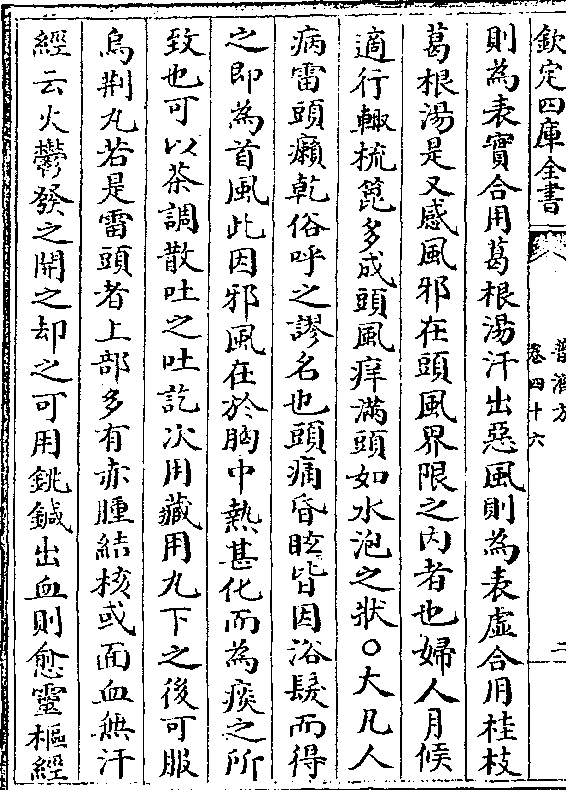 欽定四庫全書
普濟方
卷四十六
二
則為表實合用葛根湯汗出惡風則為表虛合用桂枝
葛根湯是又感風邪在頭風界限之内者也婦人月候
適行輙梳篦多成頭風痒滿頭如水泡之狀○大凡人
病雷頭癩乾俗呼之謬名也頭痛昏眩皆因浴髮而得
之即為首風此因邪風在於胸中熱甚化而為痰之所
致也可以茶調散吐之吐訖次用藏用丸下之後可服
烏荆丸若是雷頭者上部多有赤腫結核或面血無汗
經云火鬱發之開之却之可用銚鍼出血則愈靈樞經